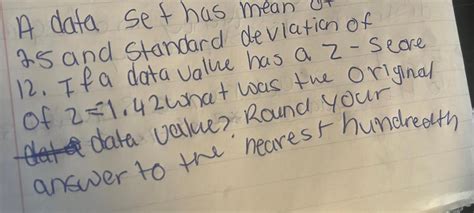 A data set has mean of
25 and standard deviation of
12. If a data value has a Z-Score
of Z=1.42 what was the original
data value? Round your
answer to the nearest hundredth